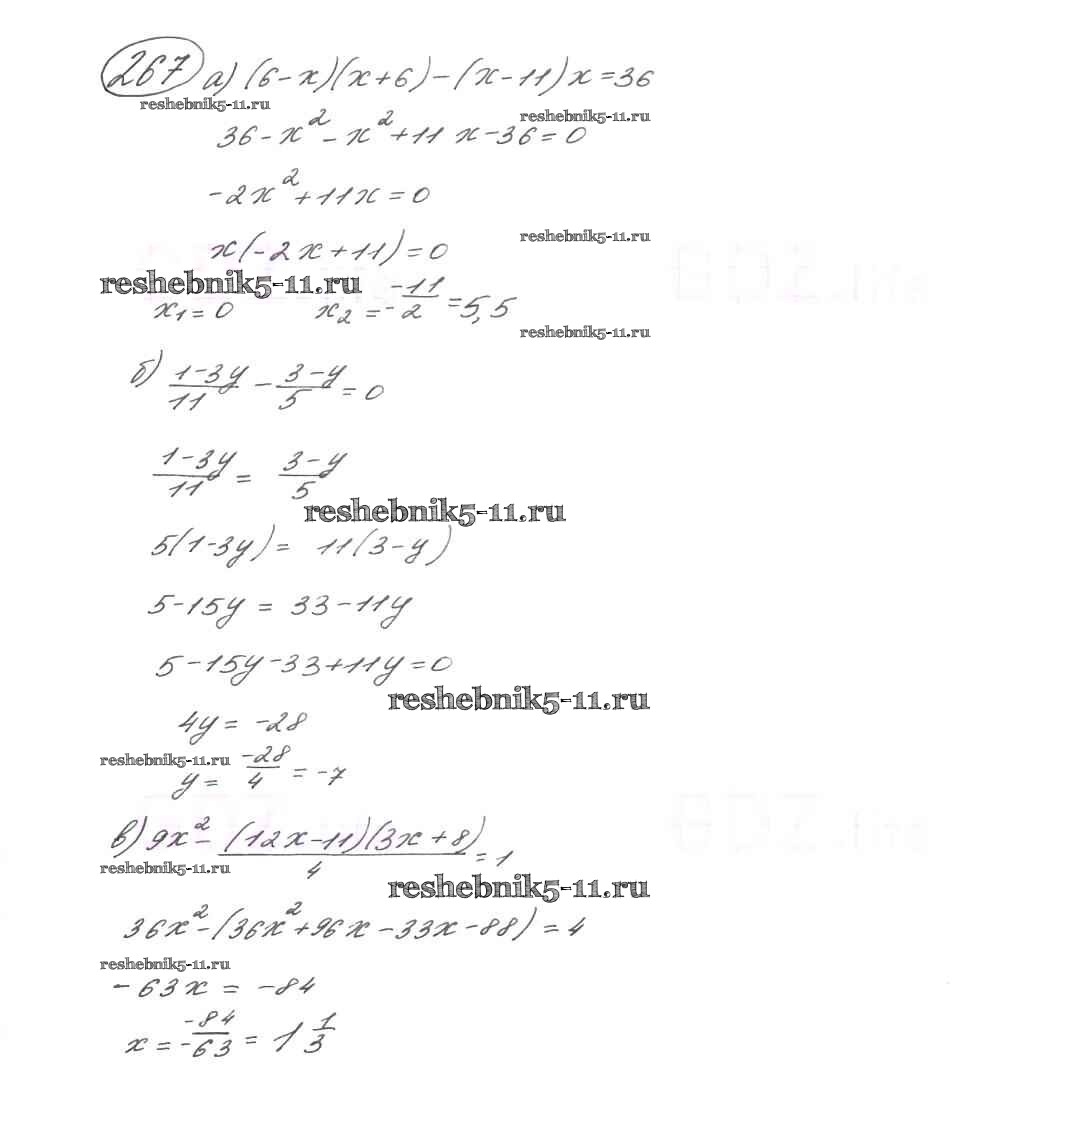 267 а) (6-x)(x+6)-(x-11)x=36
reshebnik5-11.ru
reshebnik5-11.ru
36-x²-x²+11x-36=0
-2x²+11x=0
reshebnik5-11.ru
x(-2x+11)=0
reshebnik5-11.ru
x₁=0 x₂=-11/-2=5,5
reshebnik5-11.ru
б) 1-3y/11 - 3-y/5 = 0
1-3y/11 = 3-y/5
reshebnik5-11.ru
5(1-3y)= 11(3-y)
5-15y = 33-11y
5-15y-33+11y=0
reshebnik5-11.ru
4y = -28
reshebnik5-11.ru
y= -28/4 = -7
в) 9x² - (12x-11)(3x+8)/4 = 1
reshebnik5-11.ru
reshebnik5-11.ru
36x²-(36x²+96x-33x-88)=4
reshebnik5-11.ru
-63x = -84
x = -84/-63 = 1 1/3